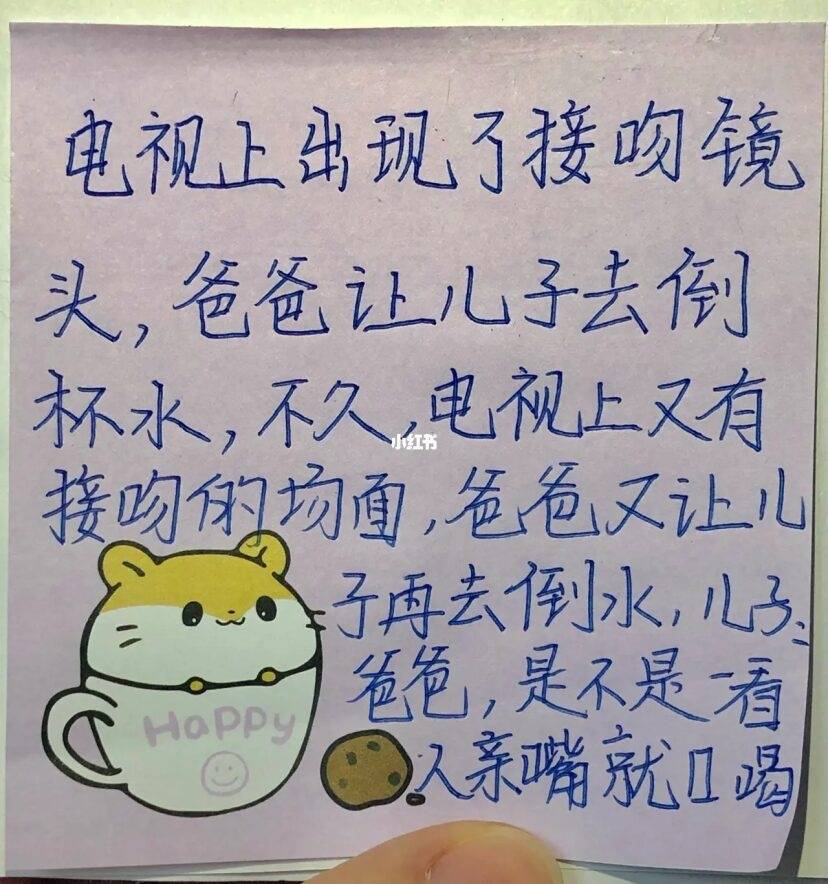 电视上出现了接吻镜
头,爸爸让儿子去倒
杯水,不久,电视上又有
小红书
接吻的场面,爸爸又让儿
子再去倒水,儿子:
爸爸,是不是一看
Happy
人亲嘴就口喝